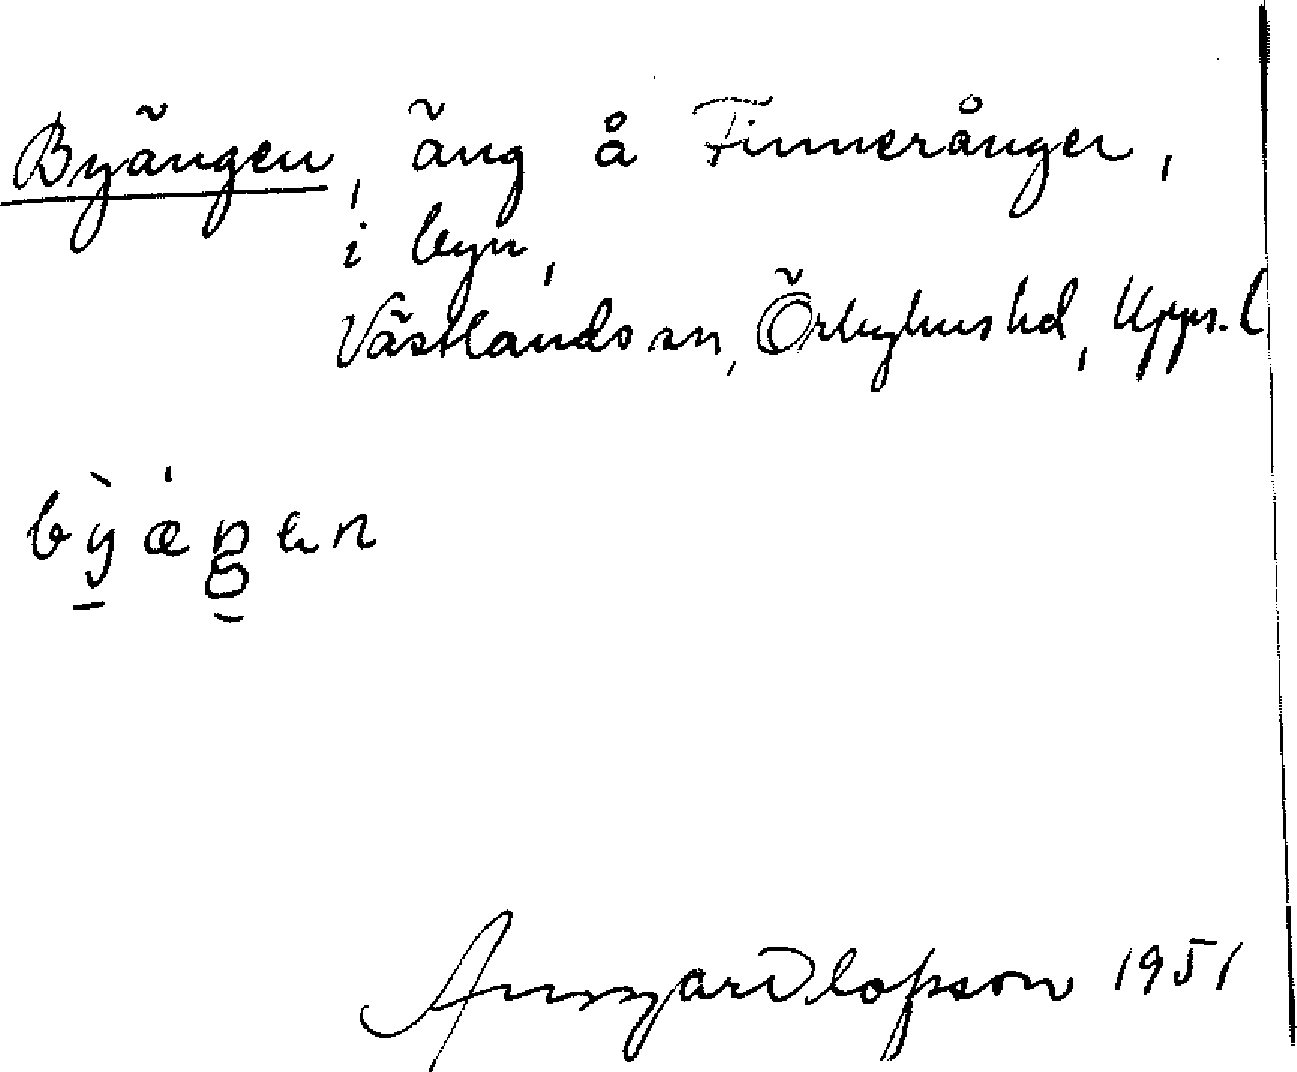 Byängen, äng å Finnerånger,
i byn,
Västlands sn, Örbyhus hd, Upps. l
bỳæ̇ŋen
Ansgar Olofsson 1951